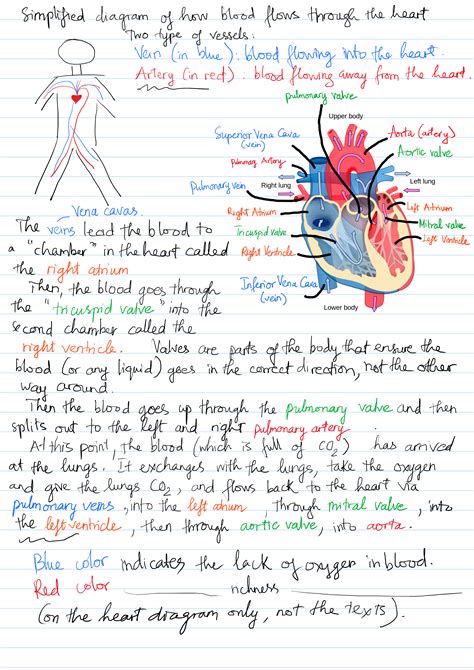 Simplified diagram of how blood flows through the heart
Two type of vessels:
Vein (in blue): blood flowing into the heart.
Artery (in red): blood flowing away from the heart.
pulmonary valve
Upper body
Superior Vena Cava
(vein)
Aorta (artery)
Aortic valve
Pulmonary Artery
Pulmonary vein
Right lung
Left lung
Right Atrium
Left Atrium
Tricuspid valve
Mitral valve
Right Ventricle
Left Ventricle
Inferior Vena Cava
(vein)
Lower body
Vena cavas
The veins lead the blood to
a "chamber" in the heart called
the right atrium
Then, the blood goes through
the "tricuspid valve" into the
second chamber called the
right ventricle. Valves are parts of the body that ensure the
blood (or any liquid) goes in the correct direction, not the other
way around.
Then the blood goes up through the pulmonary valve and then
splits out to the left and right pulmonary artery
At this point, the blood (which is full of CO2) has arrived
at the lungs. It exchanges with the lungs, take the oxygen
and give the lungs CO2, and flows back to the heart via
pulmonary veins, into the left atrium, through mitral valve, into
the left ventricle, then through aortic valve, into aorta.
Blue color indicates the lack of oxygen in blood.
Red color richness
(on the heart diagram only, not the texts).